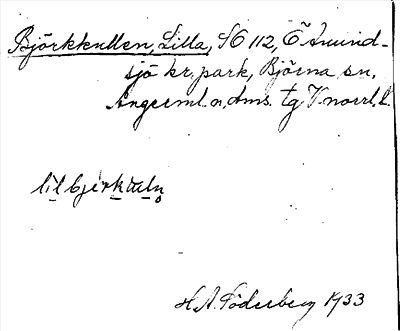 Björkkullen, Lilla, SO 112, Ö Åmund-
sjö kr. park, Björna sn,
Ångerml. n, dms. tg V norrl. l.
lilbjörkuln
H. A. Söderberg 1933